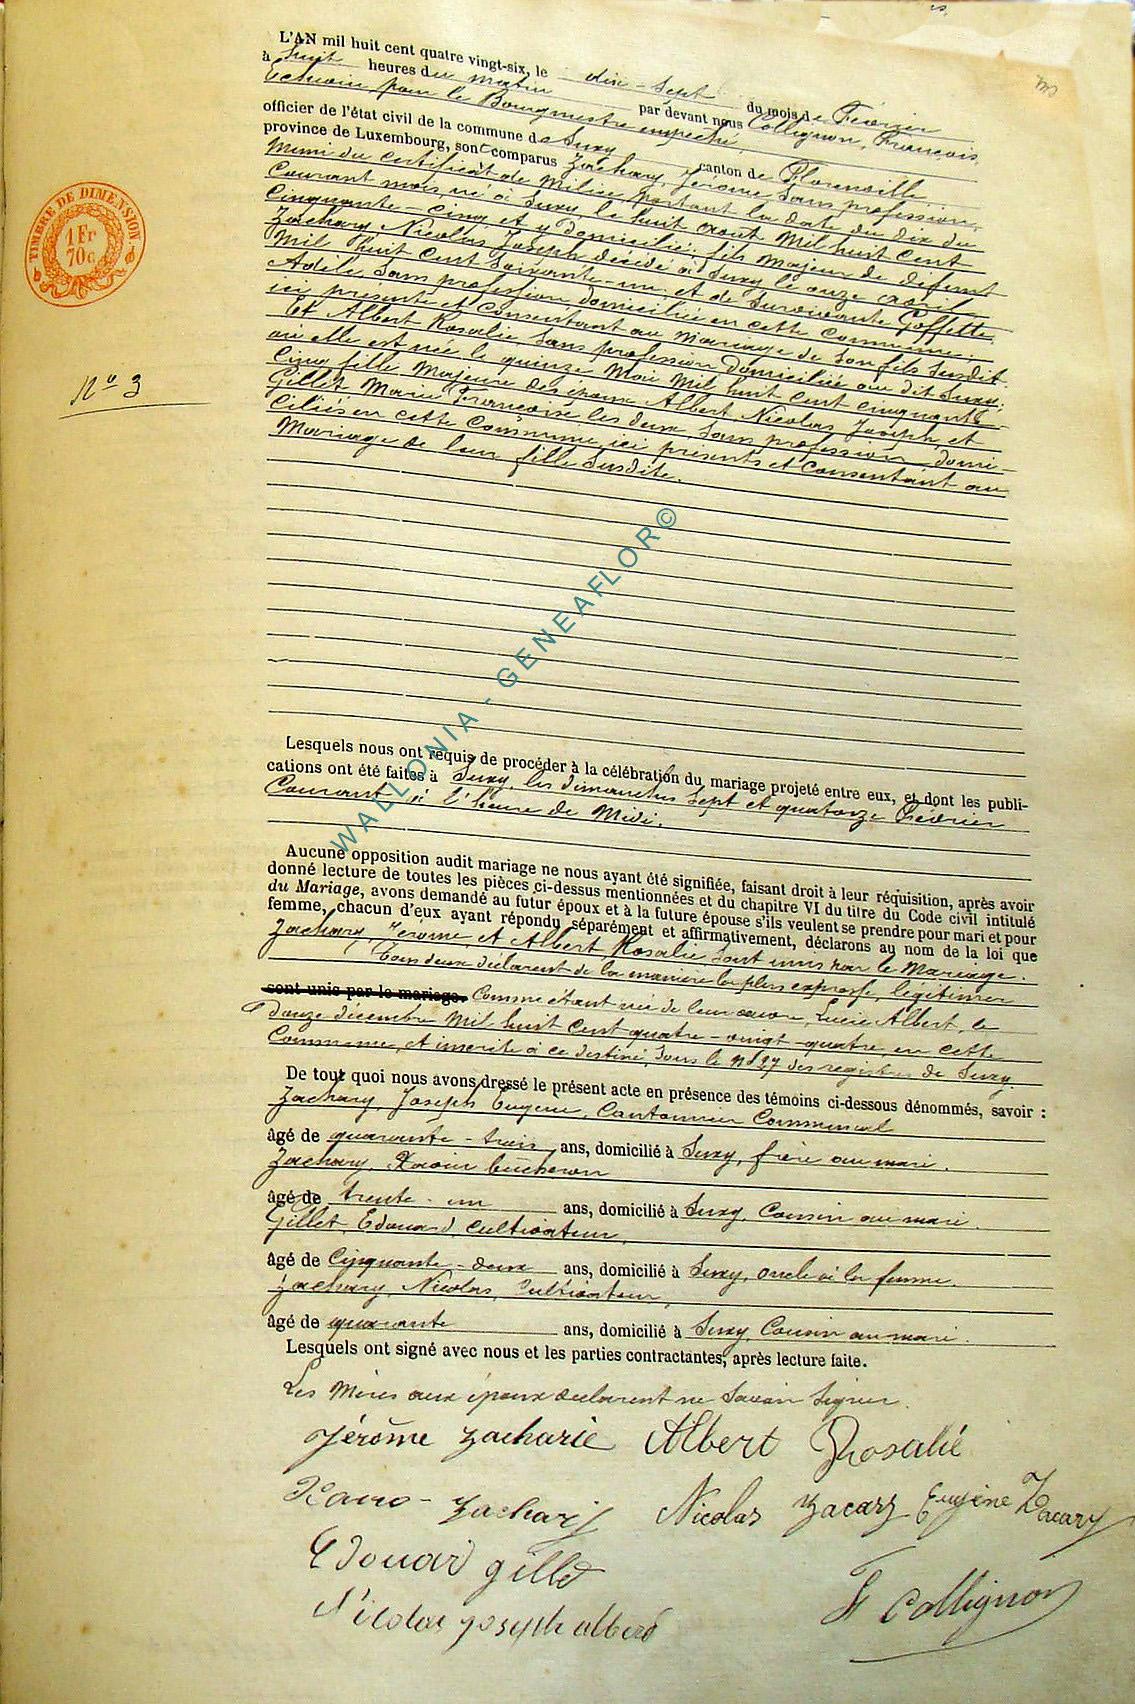 L'AN mil huit cent quatre vingt-six, le dix-sept du mois de Février
à huit heures du matin par devant nous Collignon, François,
Echevin pour le Bourgmestre empeché,
officier de l'état civil de la commune de Suxy canton de Florenville
province de Luxembourg, sont comparus Zachary, Jérome, sans profession,
Muni du certificat de Milice, portant la date du dix du
Courant mois, né à Suxy, le huit août Mil huit cent
Cinquante-cinq et y domicilié, fils majeur de défunt
Zachary, Nicolas Joseph décédé à Suxy le onze avril
Mil huit cent soixante-un, et de survivante Goffette
Adèle sans profession domiciliée en cette commune,
ici présente et consentant au mariage de son fils susdit.
Et Albert Rosalie sans profession domiciliée au dit Suxy,
où elle est née le quinze Mai Mil huit cent cinquante
Cinq fille majeure des époux Albert Nicolas Joseph, et
Gillet Marie Françoise les deux sans profession, domi-
ciliés en cette Commune, ici présents et consentant au
Mariage de leur fille susdite.
Lesquels nous ont requis de procéder à la célébration du mariage projeté entre eux, et dont les publi-
cations ont été faites à Suxy, les dimanches sept et quatorze Février
Courant à l'heure de Midi.
Aucune opposition audit mariage ne nous ayant été signifiée, faisant droit à leur réquisition, après avoir
donné lecture de toutes les pièces ci-dessus mentionnées et du chapitre VI du titre du Code civil intitulé
du Mariage, avons demandé au futur époux et à la future épouse s'ils veulent se prendre pour mari et pour
femme, chacun d'eux ayant répondu séparément et affirmativement, déclarons au nom de la loi que
Zachary, Jerome, et Albert Rosalie sont unis par le Mariage.
Tous deux déclarent de la manière la plus expresse, légitimer
sont unis par le mariage. Comme étant née de leur œuvre, Lucie Albert, le
douze décembre Mil huit cent quatre-vingt-quatre, en cette
Commune, et inscrite à ce destiné, sous le n° 27 des registres de Suxy.
De tout quoi nous avons dressé le présent acte en présence des témoins ci-dessous dénommés, savoir :
Zachary, Joseph Eugène, Cantonnier Communal
âgé de quarante-trois ans, domicilié à Suxy, frère au mari.
Zachary, Xavier bucheron
âgé de trente-un ans, domicilié à Suxy, Cousin au mari.
Gillet, Edouard, cultivateur,
âgé de Cinquante-deux ans, domicilié à Suxy, oncle à la femme.
Zachary, Nicolas, Cultivateur,
âgé de quarante ans, domicilié à Suxy, Cousin au mari.
Lesquels ont signé avec nous et les parties contractantes, après lecture faite.
Les Mères aux époux declarent ne savoir signer.
Jérôme Zacharie Albert Rosalie
Zachary Nicolas Zacary Eugène Zacary
Edouard gillet
Nicolas joseph albert F Collignon
N° 3
TIMBRE DE DIMENSION
1 Fr
70 c.
WALLONIA - GENEAFLOR©